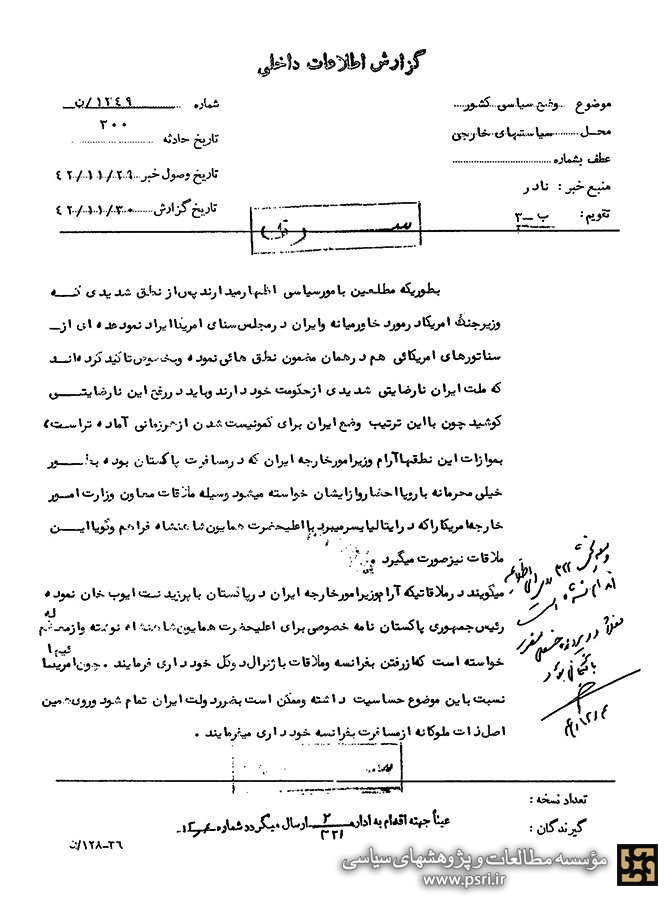 گزارش اطلاعات داخلی
موضوع وضع سیاسی کشور
شماره ۱۲۴۹/ن
۳۰۰
محل سیاستهای خارجی
تاریخ حادثه
عطف بشماره
تاریخ وصول خبر ۴۲/۱۱/۲۹
منبع خبر : نادر
تاریخ گزارش ۴۲/۱۱/۳۰
تقویم: ب ـ ۳
بطوریکه مطلعین بامورسیاسی اظهارمیدارند پس از نطق شدیدی که
وزیرجنگ امریکادرمورد خاورمیانه وایران درمجلس سنای امریکاایراد نمودعده ای از
سناتورهای امریکائی هم درهمان مضمون نطق هائی نموده وبخصوص تاکید کرده اند
که ملت ایران نارضایتی شدیدی ازحکومت خود دارند وباید دررفع این نارضایتی
کوشید چون بااین ترتیب وضع ایران برای کمونیست شدن ازهرزمانی آماده تراست،
بموازات این نطقهاآرام وزیرامورخارجه ایران که درمسافرت پاکستان بوده بطور
خیلی محرمانه باروپااحضاروازایشان خواسته میشود وسیله ملاقات معاون وزارت امور
خارجه امریکاراکه درایتالیابسرمیبرد بااعلیحضرت همایون شاهنشاه فراهم وگویااین
ملاقات نیزصورت میگیرد .
میگویند درملاقاتیکه آرام وزیرامورخارجه ایران درپاکستان باپرزیدنت ایوب خان نموده
رئیس جمهوری پاکستان نامه خصوصی برای اعلیحضرت همایون شاهنشاه نوشته وازمعظم له
خواسته است که ازرفتن بفرانسه وملاقات باژنرال دوگل خود داری فرمایند . چون امریکائیها
نسبت باین موضوع حساسیت داشته وممکن است بضرردولت ایران تمام شود وروی همین
اصل ذات ملوکانه ازمسافرت بفرانسه خود داری میفرمایند .
تعداد نسخه :
گیرندگان :
عیناً جهته اقدام به اداره ۲/۳۲۱ ارسال میگردد شماره
۱۲۸-۳۶/ن
مؤسسه مطالعات و پژوهشهای سیاسی
www.psri.ir